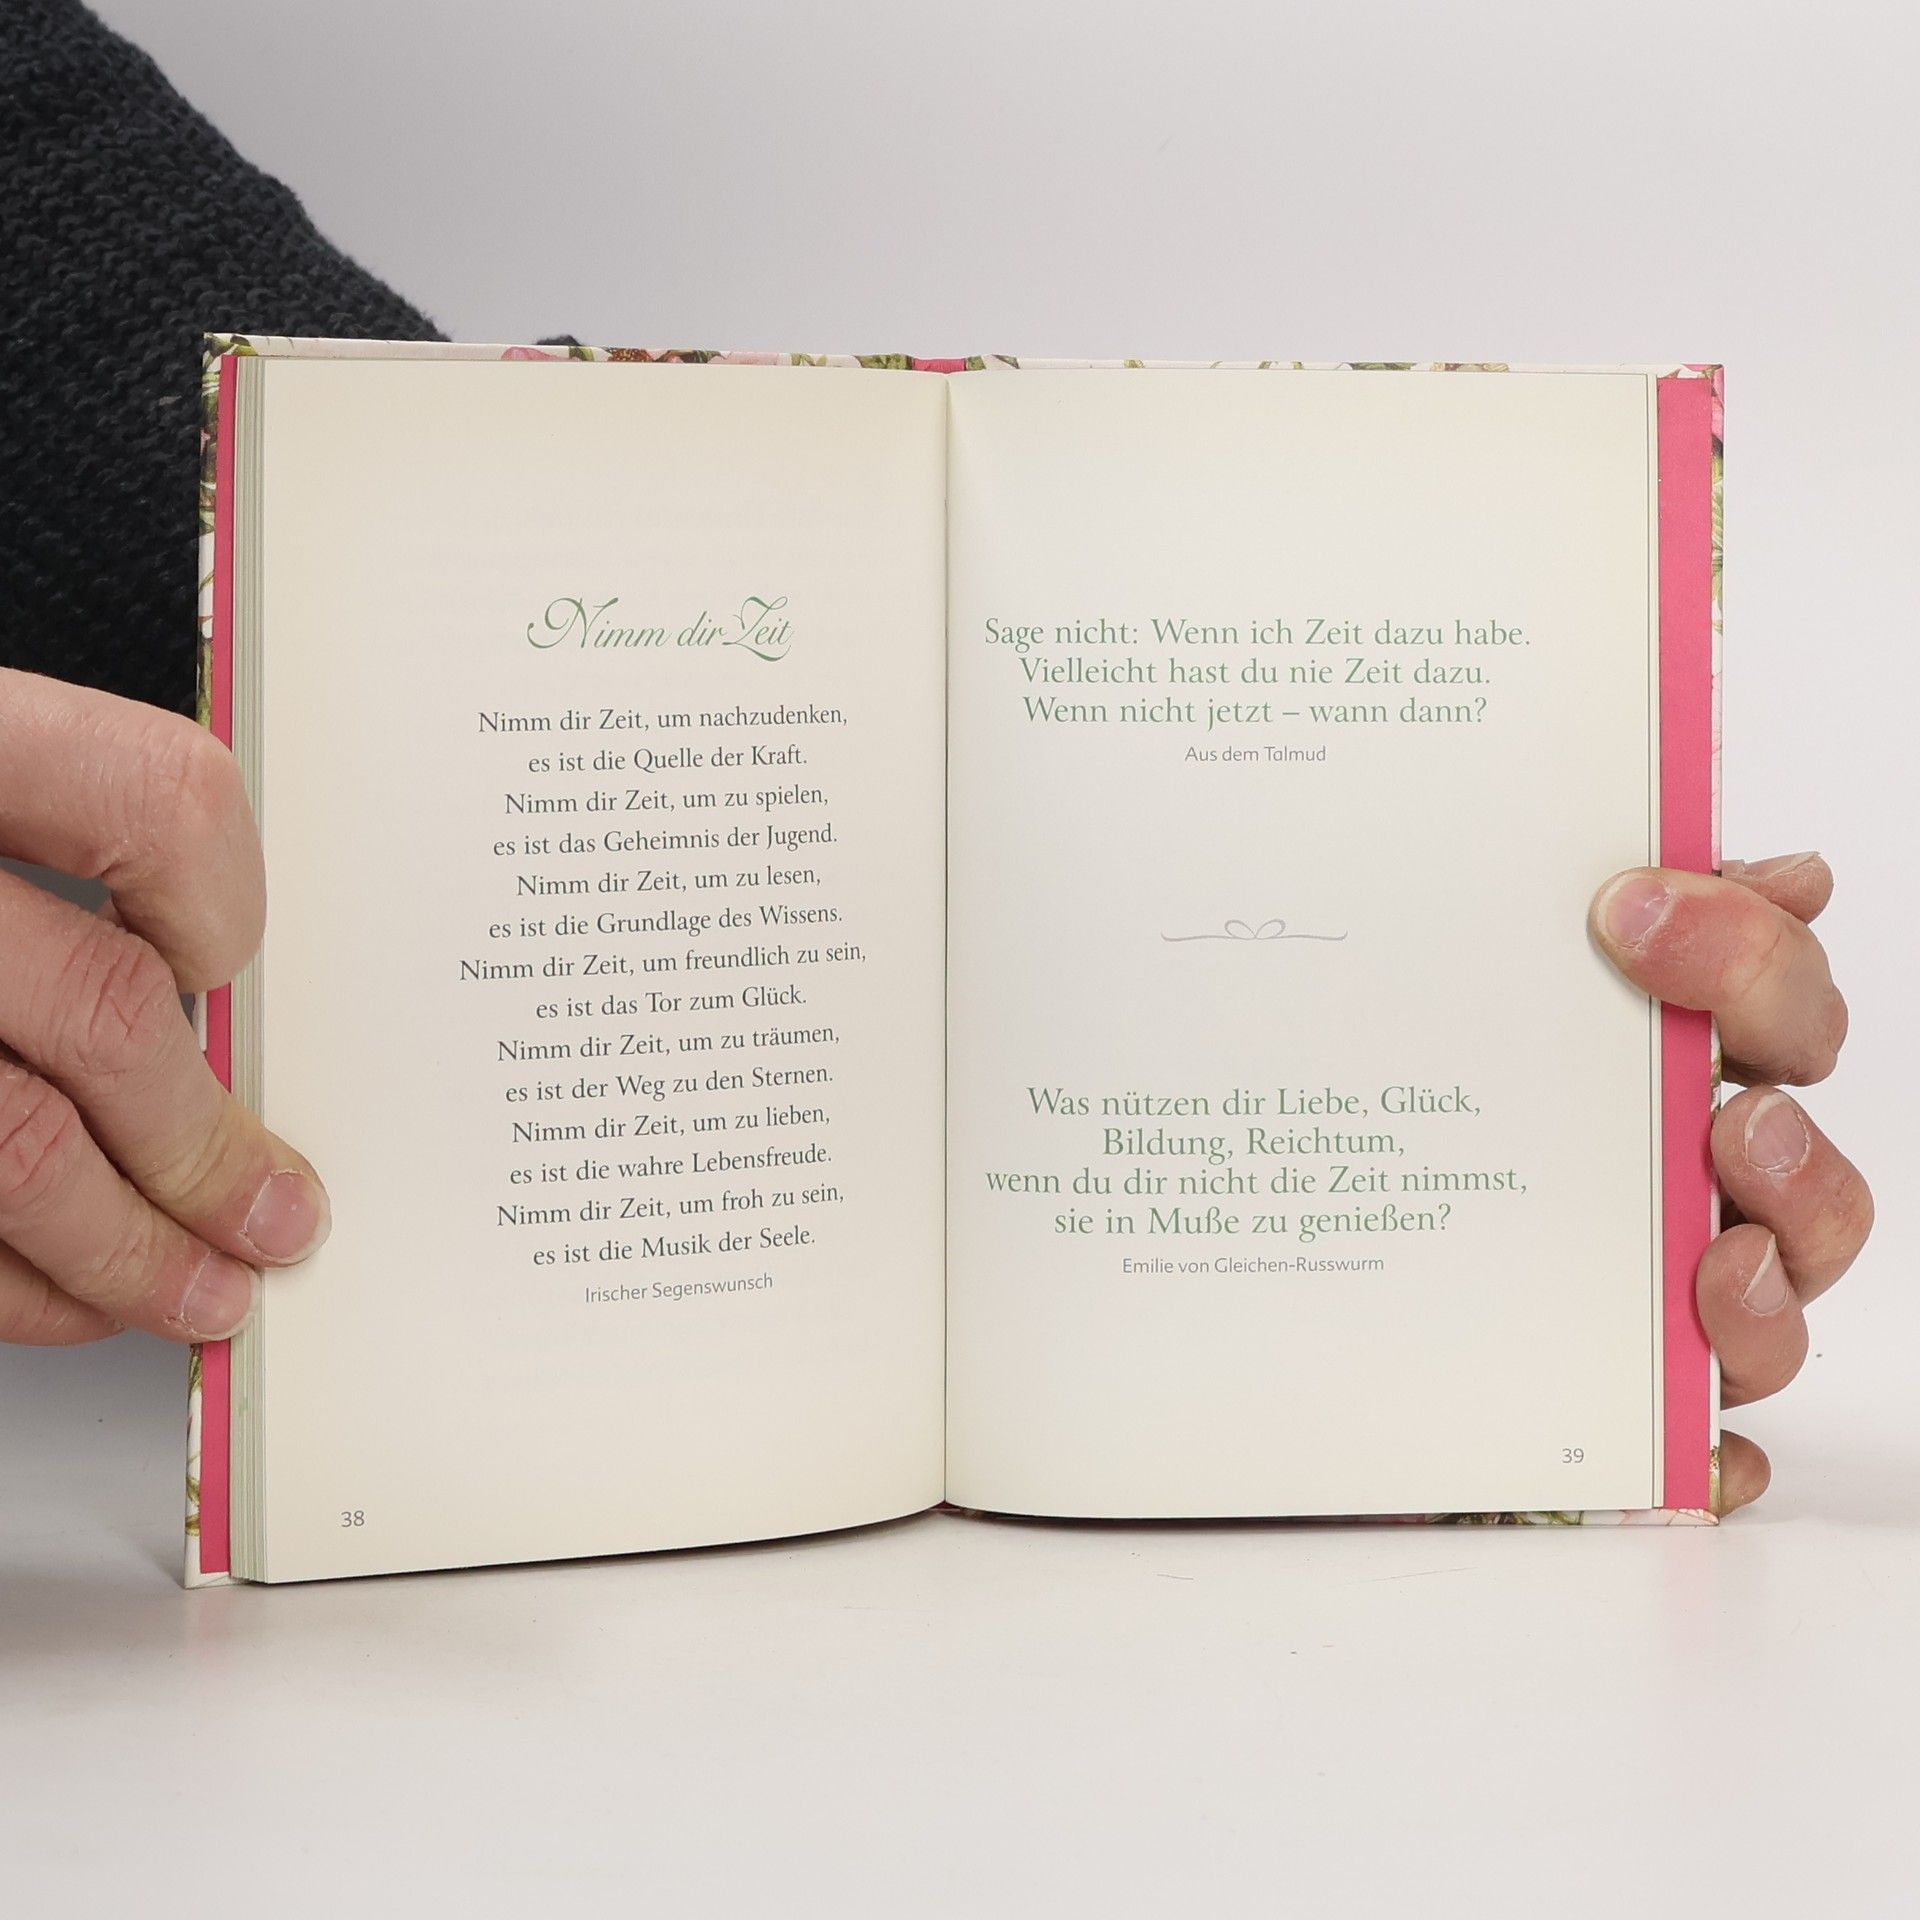 Nimm dir Zeit
Nimm dir Zeit, um nachzudenken,
es ist die Quelle der Kraft.
Nimm dir Zeit, um zu spielen,
es ist das Geheimnis der Jugend.
Nimm dir Zeit, um zu lesen,
es ist die Grundlage des Wissens.
Nimm dir Zeit, um freundlich zu sein,
es ist das Tor zum Glück.
Nimm dir Zeit, um zu träumen,
es ist der Weg zu den Sternen.
Nimm dir Zeit, um zu lieben,
es ist die wahre Lebensfreude.
Nimm dir Zeit, um froh zu sein,
es ist die Musik der Seele.
Irischer Segenswunsch
38
Sage nicht: Wenn ich Zeit dazu habe.
Vielleicht hast du nie Zeit dazu.
Wenn nicht jetzt – wann dann?
Aus dem Talmud
Was nützen dir Liebe, Glück,
Bildung, Reichtum,
wenn du dir nicht die Zeit nimmst,
sie in Muße zu genießen?
Emilie von Gleichen-Russwurm
39